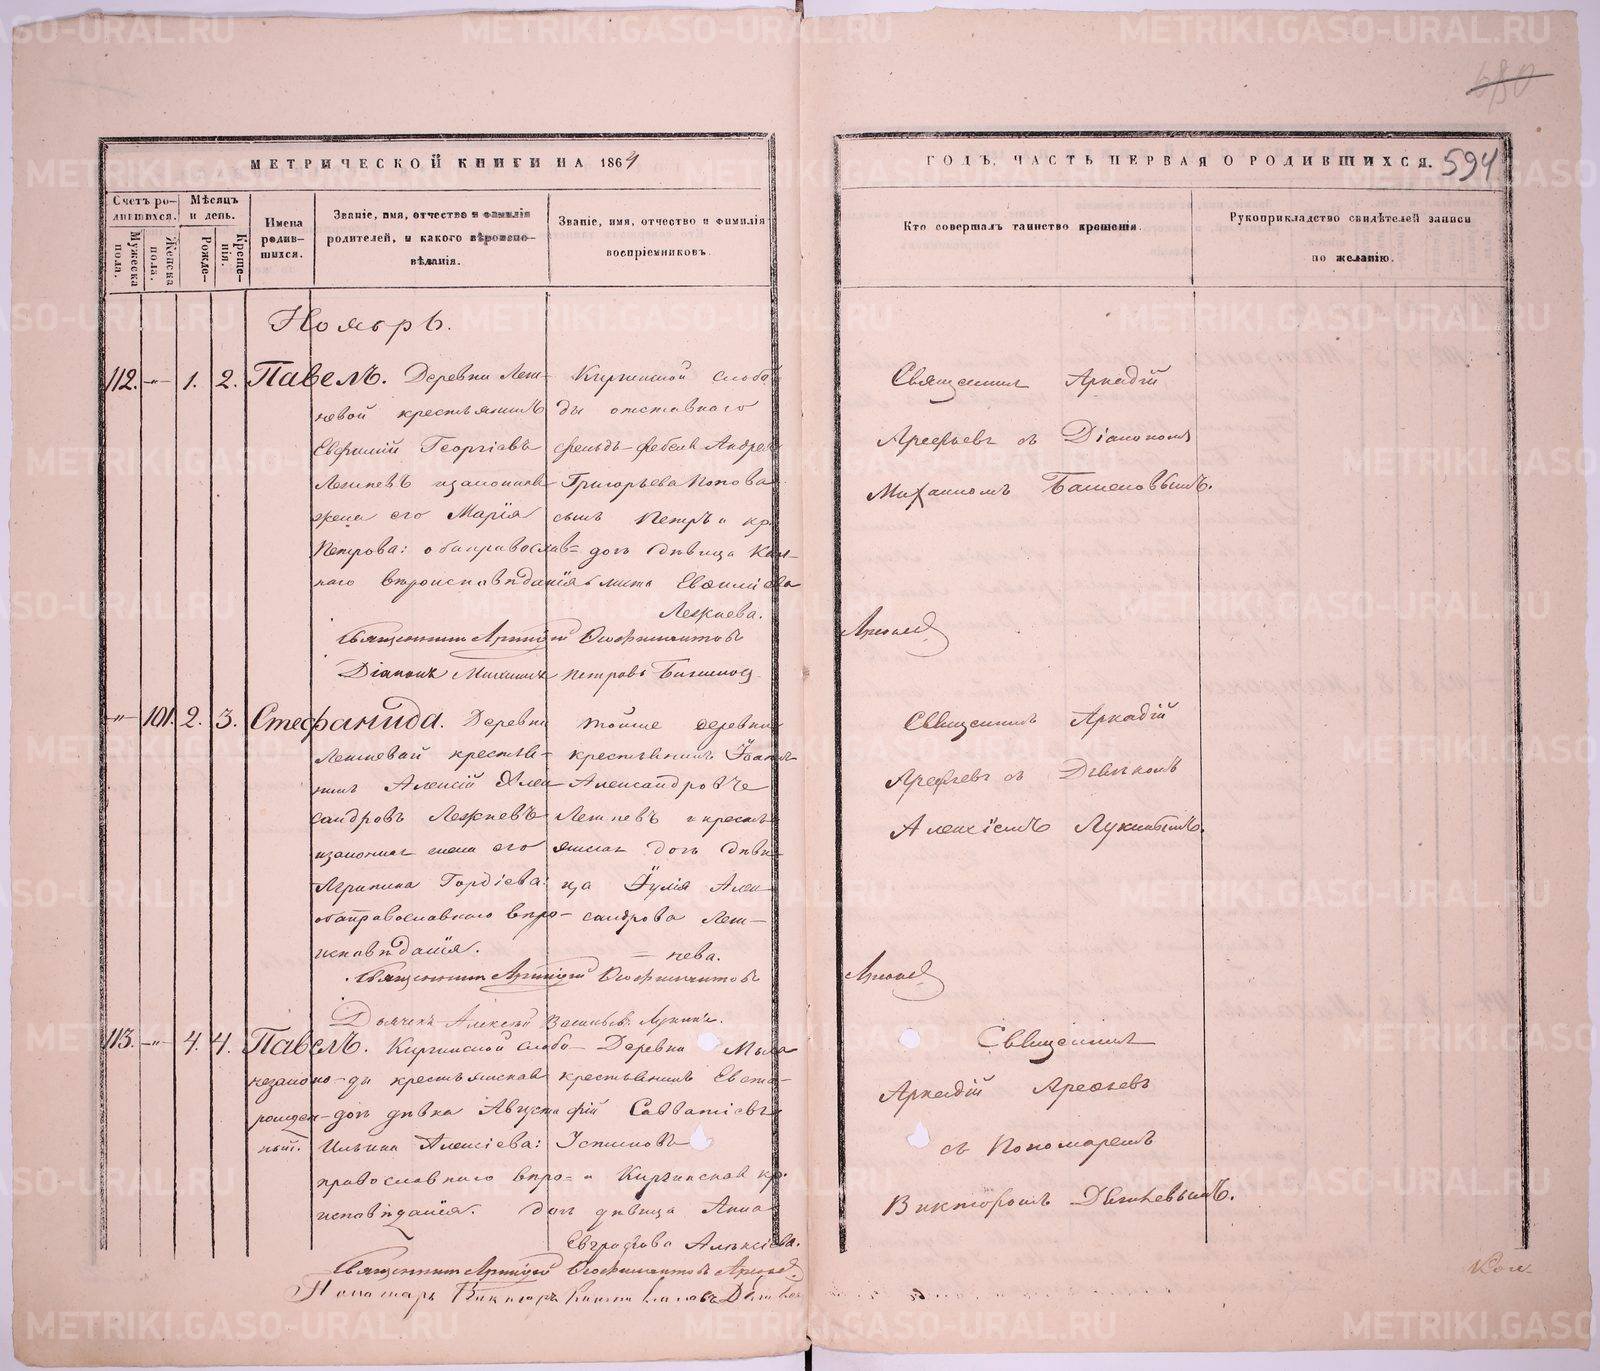 METRIKI.GASO-URAL.RU
680
МЕТРИЧЕСКОЙ КНИГИ НА 1864
ГОДЪ, ЧАСТЬ ПЕРВАЯ О РОДИВШИХСЯ.
594
Счетъ ро-
дившихся.
Мужеска
пола.
Женска
пола.
Мѣсяцъ
и день.
Рожде-
Креще-
нія.
Имена
родив-
шихся.
Званіе, имя, отчество и фамилія
родителей, и какого вѣроиспо-
вѣданія.
Званіе, имя, отчество и фамилія
воспріемниковъ.
Кто совершалъ таинство крещенія.
Рукоприкладство свидѣтелей записи
по желанію.
Ноябрь.
112. -"- 1. 2. Павелъ.
Деревни Леж-
невой крестьянинъ
Евфимій Георгіевъ
Лежневъ и законная
жена его Марія
Петрова: оба православ-
наго вѣроисповѣданія
Киргинской слобо-
ды отставнаго
фельдфебеля Андрея
Григорьева Попова
сынъ Петръ и кр.
дочь дѣвица
Лежнева.
Священникъ Аркадій
Арефьевъ съ Діакономъ
Михаиломъ Баженовымъ.
Священникъ Аркадій Арефьев
Діаконъ Михаилъ Петровъ Баженов
-"- 101. 2. 3. Стефанида.
Деревни
Лежневой крестья-
нинъ Алексій Алек-
сандровъ Лежневъ
и законная жена его
Агрипина Гордіева:
оба православнаго вѣро-
исповѣданія.
тойже деревни
крестьянинъ Іоаннъ
Александровъ
Лежневъ и крестья
янская дочь дѣви-
ца Іулія Алек-
сандрова Леж-
нева.
Священникъ Аркадій
Арефьевъ съ Дьячкомъ
Алексіемъ Лукинымъ.
Священникъ Аркадій Арефьев
Дьячекъ Алексей Васильев Лукинъ.
113. -"- 4. 4. Павелъ.
незаконо-
рожден-
ный.
Киргинской слобо-
ды крестьянская
дочь дѣвка Августа
Ильина Алексіева:
православнаго вѣро-
исповѣданія.
Деревни
крестьянинъ Евста-
фій Савватіевъ
Устиновъ
и Киргинская кр.
дочь дѣвица Анна
Евграфова Алексіева.
Священникъ
Аркадій Арефьевъ
съ Пономаремъ
Викторомъ
Священникъ Аркадій Арефьев
Пономарь Викторъ